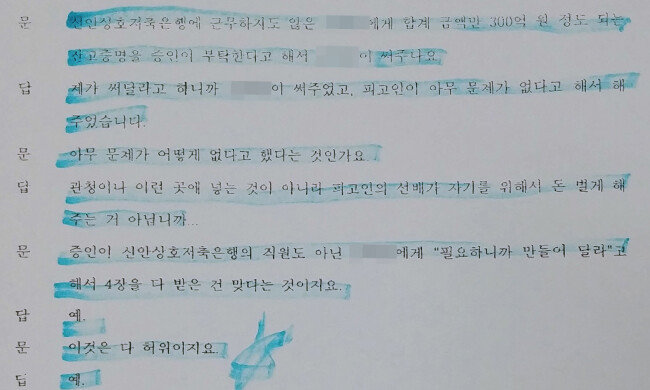 문 신안상호저축은행에 근무하지도 않은 에게 합계 금액만 300억 원 정도 되는
잔고증명을 증인이 부탁한다고 해서 이 써주나요
답 제가 써달라고 하니까 이 써주었고, 피고인이 아무 문제가 없다고 해서 해
주었습니다.
문 아무 문제가 어떻게 없다고 했다는 것인가요
답 관청이나 이런 곳에 넣는 것이 아니라 피고인의 선배가 자기를 위해서 돈 벌게 해
주는 거 아닙니까...
문 증인이 신안상호저축은행의 직원도 아닌 에게 "필요하니까 만들어 달라"고
해서 4장을 다 받은 건 맞다는 것이지요.
답 예.
문 이것은 다 허위이지요.
답 예.